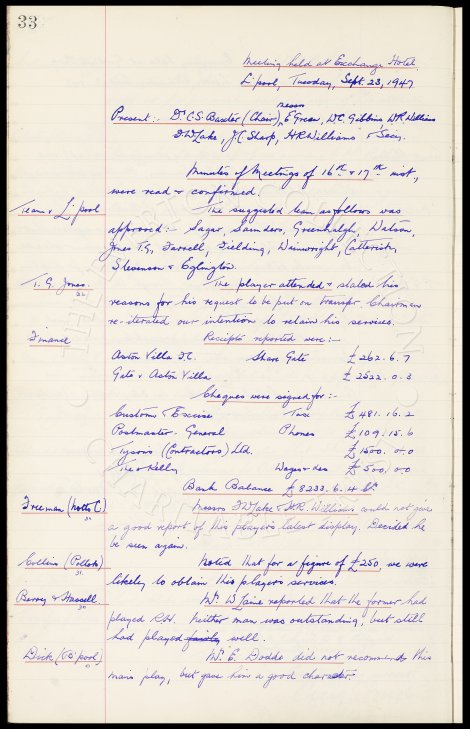 33
Meeting held at Exchange Hotel,
L'pool, Tuesday, Sept. 23, 1947
Present:- Dr. C.S. Baxter (Chair), Messrs E Green, W.C. Gibbins, W.R. Williams
F.W. Lake, J.C. Sharp, H.R. Williams & Secy.
Minutes of Meetings of 16th & 17th inst,
were read & confirmed.
Team v L'pool The suggested team as follows was
approved:- Sagar, Saunders, Greenhalgh, Watson,
Jones T.G., Farrell, Fielding, Wainwright, Catterick,
Stevenson & Eglington.
T. G. Jones. The player attended & stated his
reasons for his request to be put on transfer. Chairman
re-iterated our intention to retain his services.
Finance Receipts reported were:-
Aston Villa F.C. Share Gate £262. 6. 7
Gate v Aston Villa £2522. 0. 3
Cheques were signed for:-
Customs & Excise Tax £481. 16. 2
Postmaster-General Phones £109. 15. 6
Tysons (Contractors) Ltd. £1500. 0. 0
Theo Kelly Wages &c £500. 0. 0
Bank Balance £8233. 6. 4
Freeman (Notts C) Messrs F.W. Lake & H.R. Williams could not give
a good report of this player's latest display. Decided he
be seen again.
Collins ( ) Noted that for a figure of £250, we were
likely to obtain this player's services.
Berry & Hassell Mr. Laine reported that the former had
played R.H. Neither man was outstanding, but still
had played fairly well.
Dick ( ) Mr. E. Dodds did not recommend this
man's play, but gave him a good character.